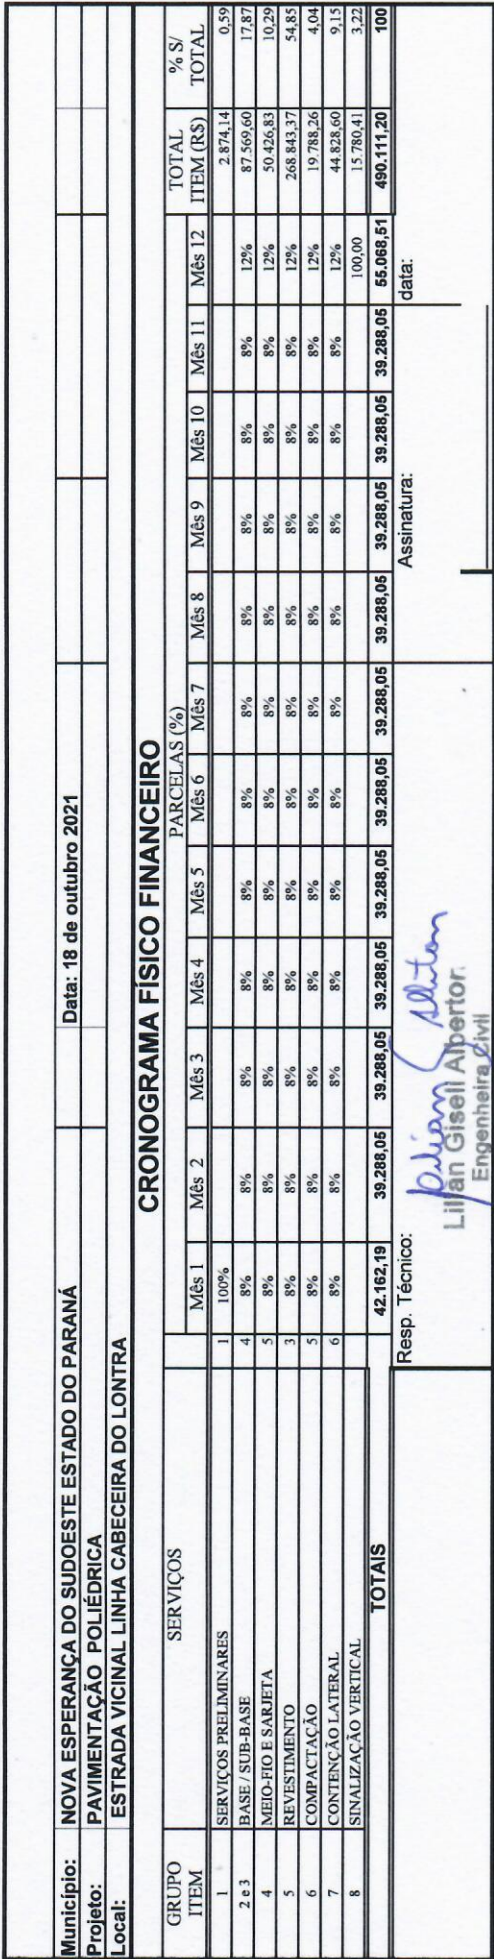 Município: NOVA ESPERANÇA DO SUDOESTE ESTADO DO PARANÁ
Projeto: PAVIMENTAÇÃO POLIÉDRICA Data: 18 de outubro 2021
Local: ESTRADA VICINAL LINHA CABECEIRA DO LONTRA
CRONOGRAMA FÍSICO FINANCEIRO
GRUPO ITEM SERVIÇOS PARCELAS (%) TOTAL ITEM (R$) % S/ TOTAL
Mês 1 Mês 2 Mês 3 Mês 4 Mês 5 Mês 6 Mês 7 Mês 8 Mês 9 Mês 10 Mês 11 Mês 12
1 SERVIÇOS PRELIMINARES 1 100% 2.874,14 0,59
2 e 3 BASE / SUB-BASE 4 8% 8% 8% 8% 8% 8% 8% 8% 8% 8% 8% 12% 87.569,60 17,87
4 MEIO-FIO E SARJETA 5 8% 8% 8% 8% 8% 8% 8% 8% 8% 8% 8% 12% 50.426,83 10,29
5 REVESTIMENTO 3 8% 8% 8% 8% 8% 8% 8% 8% 8% 8% 8% 12% 268.843,37 54,85
6 COMPACTAÇÃO 5 8% 8% 8% 8% 8% 8% 8% 8% 8% 8% 8% 12% 19.788,26 4,04
7 CONTENÇÃO LATERAL 6 8% 8% 8% 8% 8% 8% 8% 8% 8% 8% 8% 12% 44.828,60 9,15
8 SINALIZAÇÃO VERTICAL 100,00 15.780,41 3,22
TOTAIS 42.162,19 39.288,05 39.288,05 39.288,05 39.288,05 39.288,05 39.288,05 39.288,05 39.288,05 39.288,05 39.288,05 55.068,51 490.111,20 100
Resp. Técnico: Assinatura: data:
Lilian Giseli Alberton
Engenheira Civil